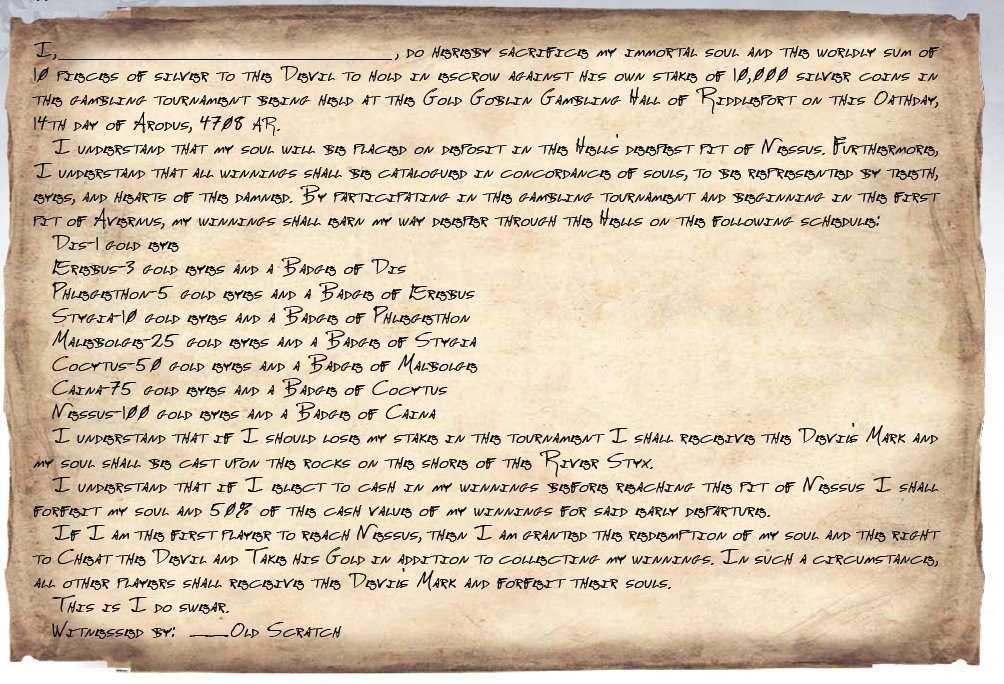 I,______________________________, do hereby sacrifice my immortal soul and the worldly sum of
10 pieces of silver to the Devil to hold in escrow against his own stake of 10,000 silver coins in
the gambling tournament being held at the Gold Goblin Gambling Hall of Riddleport on this Oathday,
14th day of Arodus, 4708 AR.
I understand that my soul will be placed on deposit in the Hell's deepest pit of Nessus. Furthermore,
I understand that all winnings shall be catalogued in concordance of souls, to be represented by teeth,
eyes, and hearts of the damned. By participating in the gambling tournament and beginning in the first
pit of Avernus, my winnings shall earn my way deeper through the Hells on the following schedule:
Dis-1 gold eye
Erebus-3 gold eyes and a Badge of Dis
Phlegethon-5 gold eyes and a Badge of Erebus
Stygia-10 gold eyes and a Badge of Phlegethon
Malebolge-25 gold eyes and a Badge of Stygia
Cocytus-50 gold eyes and a Badge of Malbolge
Caina-75 gold eyes and a Badge of Cocytus
Nessus-100 gold eyes and a Badge of Caina
I understand that if I should lose my stake in the tournament I shall receive the Devil's Mark and
my soul shall be cast upon the rocks on the shore of the River Styx.
I understand that if I elect to cash in my winnings before reaching the pit of Nessus I shall
forfeit my soul and 50% of the cash value of my winnings for said early departure.
If I am the first player to reach Nessus, then I am granted the redemption of my soul and the right
to Cheat the Devil and Take his Gold in addition to collecting my winnings. In such a circumstance,
all other players shall receive the Devil's Mark and forfeit their souls.
This is I do swear.
Witnessed by: ___Old Scratch